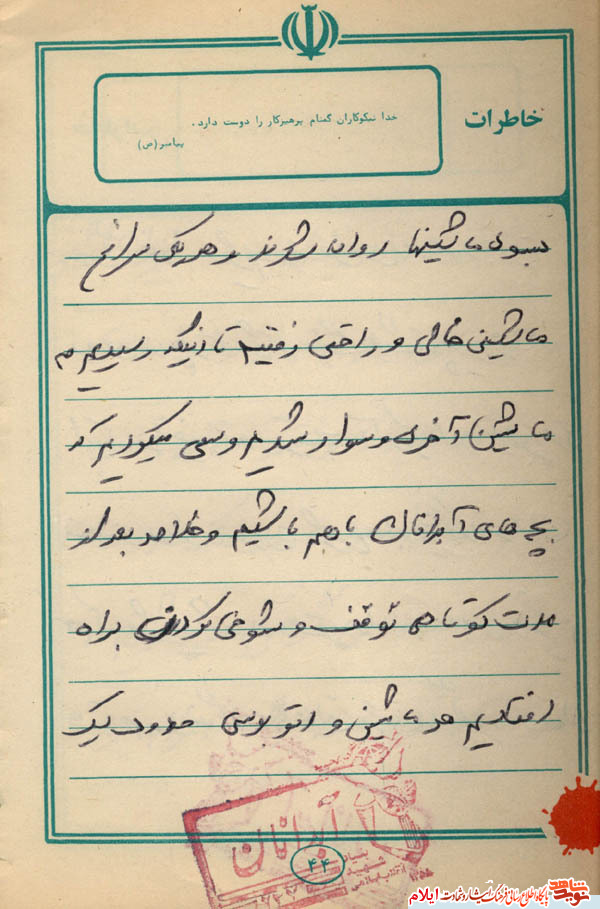 خاطرات
خدا نیکوکاران گمنام پرهیزکار را دوست دارد.
پیامبر (ص)
بسوی ماشینها روان شدند و هر یکی سراغ
ماشینی خالی و راحتی رفتیم تا اینکه رسیدیم م
ماشین آخری و سوار شدیم و سعی میکردیم که
بچه های آبدانان باهم باشیم و خلاصه بعد از
مدت کوتاهی توقف و شوخی کردن براه
افتادیم هر ماشین و اتوبوسی حدود یک
آبدانان
بنیاد
شهید
انقلاب اسلامی
۴۴
نوید شاهد
پایگاه اطلاع رسانی فرهنگ ایثار و شهادت ایلام